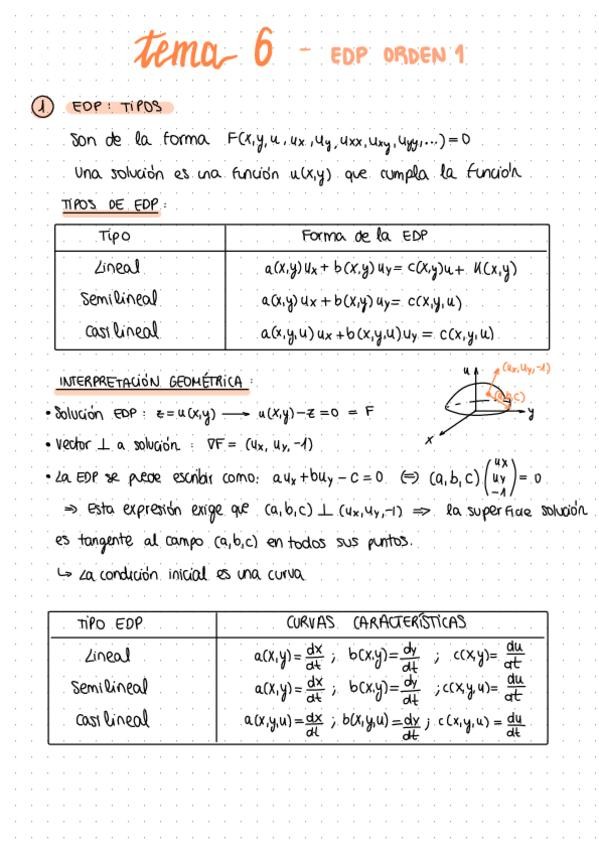 tema 6 - EDP ORDEN 1
1 EDP: TIPOS
Son de la forma F(x,y,u,ux,uy,uxx,uxy,uyy,...)=0
Una solución es una función u(x,y) que cumpla la función
TIPOS DE EDP:
Tipo Forma de la EDP
Lineal a(x,y)ux + b(x,y)uy= c(x,y)u + K(x,y)
Semilineal a(x,y)ux + b(x,y)uy= c(x,y,u)
Casilineal a(x,y,u)ux+b(x,y,u)uy = c(x,y,u)
INTERPRETACIÓN GEOMÉTRICA:
u (ux,uy,-1)
(a,b,c)
y
x
• Solución EDP: z=u(x,y) → u(x,y)-z=0 = F
• Vector ⊥ a solución: ∇F= (ux, uy, -1)
• La EDP se puede escribir como: aux+buy-c=0 ⇔ (a,b,c) (ux uy -1) = 0
⇒ Esta expresión exige que (a,b,c) ⊥ (ux,uy,-1) ⇒ la superficie solución
es tangente al campo (a,b,c) en todos sus puntos.
↳ La condición inicial es una curva
TIPO EDP CURVAS CARACTERÍSTICAS
Lineal a(x,y)= dx/dt ; b(x,y)= dy/dt ; c(x,y)= du/dt
Semilineal a(x,y)= dx/dt ; b(x,y)= dy/dt ; c(x,y,u)= du/dt
Casilineal a(x,y,u)= dx/dt ; b(x,y,u)= dy/dt ; c(x,y,u) = du/dt